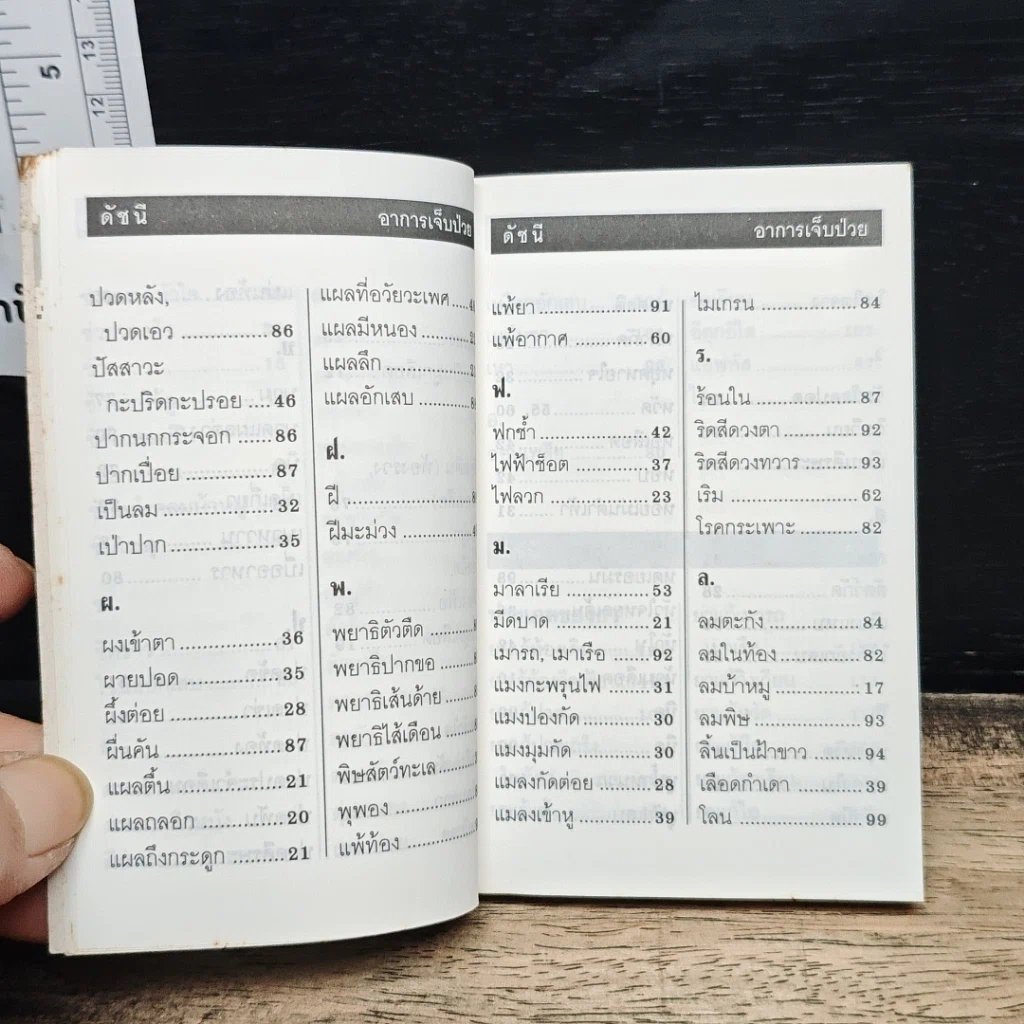 5
13
12
ดัชนี อาการเจ็บป่วย
ปวดหลัง,
ปวดเอว ........... 86
ปัสสาวะ
กะปริดกะปรอย .... 46
ปากนกกระจอก ...... 86
ปากเปื่อย ............... 87
เป็นลม .................. 32
เป่าปาก ................ 35
ผ.
ผงเข้าตา ............... 36
ผายปอด ............... 35
ผึ้งต่อย ................. 28
ผื่นคัน .................. 87
แผลตื้น ................ 21
แผลถลอก ............ 20
แผลถึงกระดูก ......... 21
แผลที่อวัยวะเพศ.....
แผลมีหนอง ..........
แผลลึก ................
แผลอักเสบ ..........
ฝ.
ฝี .......................
ฝีมะม่วง ..............
พ.
พยาธิตัวตืด .........
พยาธิปากขอ ........
พยาธิเส้นด้าย .......
พยาธิไส้เดือน .......
พิษสัตว์ทะเล........
พุพอง .................
แพ้ท้อง ...............
ดัชนี อาการเจ็บป่วย
แพ้ยา ................. 91
แพ้อากาศ ........... 60
ฟ.
ฟกช้ำ ................. 42
ไฟฟ้าช็อต ........... 37
ไฟลวก ................ 23
ม.
มาลาเรีย ............. 53
มีดบาด ............... 21
เมารถ, เมาเรือ ...... 92
แมงกะพรุนไฟ ....... 31
แมงป่องกัด .......... 30
แมงมุมกัด ........... 30
แมลงกัดต่อย ........ 28
แมลงเข้าหู ........... 39
ไมเกรน ............... 84
ร.
ร้อนใน ................ 87
ริดสีดวงตา ........... 92
ริดสีดวงทวาร ........ 93
เริม .................... 62
โรคกระเพาะ ......... 82
ล.
ลมตะกัง .............. 84
ลมในท้อง ............ 82
ลมบ้าหมู ............. 17
ลมพิษ ................ 93
ลิ้นเป็นฝ้าขาว ....... 94
เลือดกำเดา .......... 39
โลน ................... 99